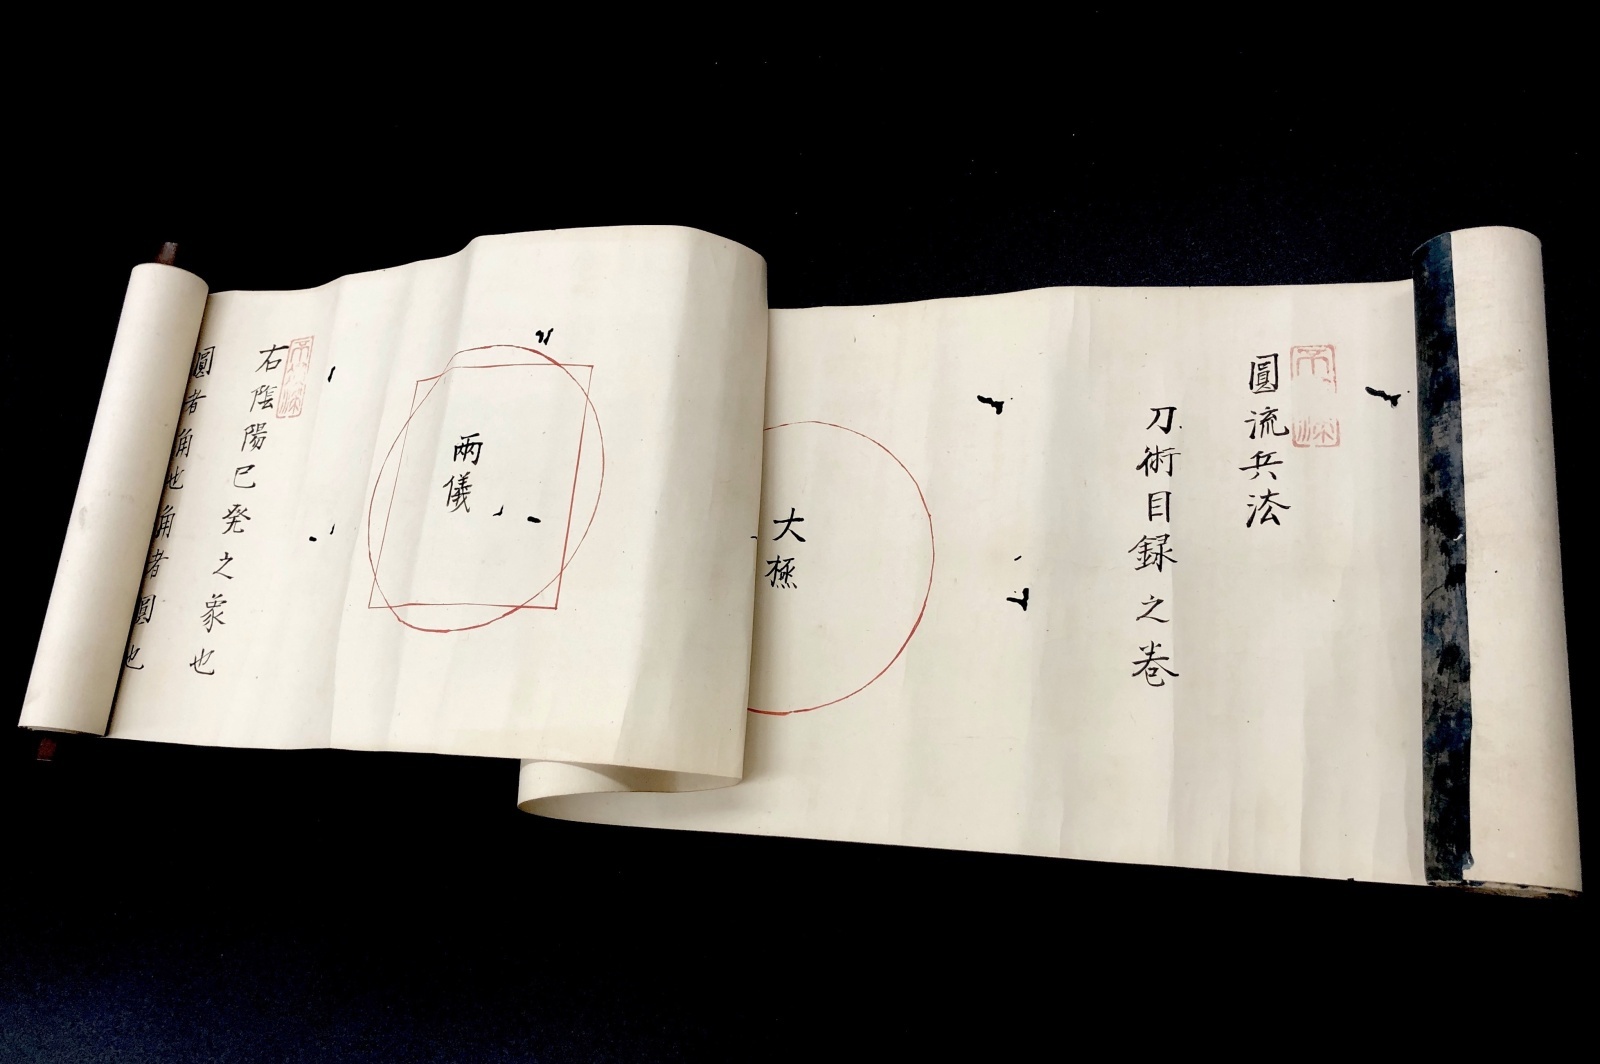 圓流兵法
刀術目録之巻
大極
兩儀
右陰陽已発之象也
圓者角也角者圓也